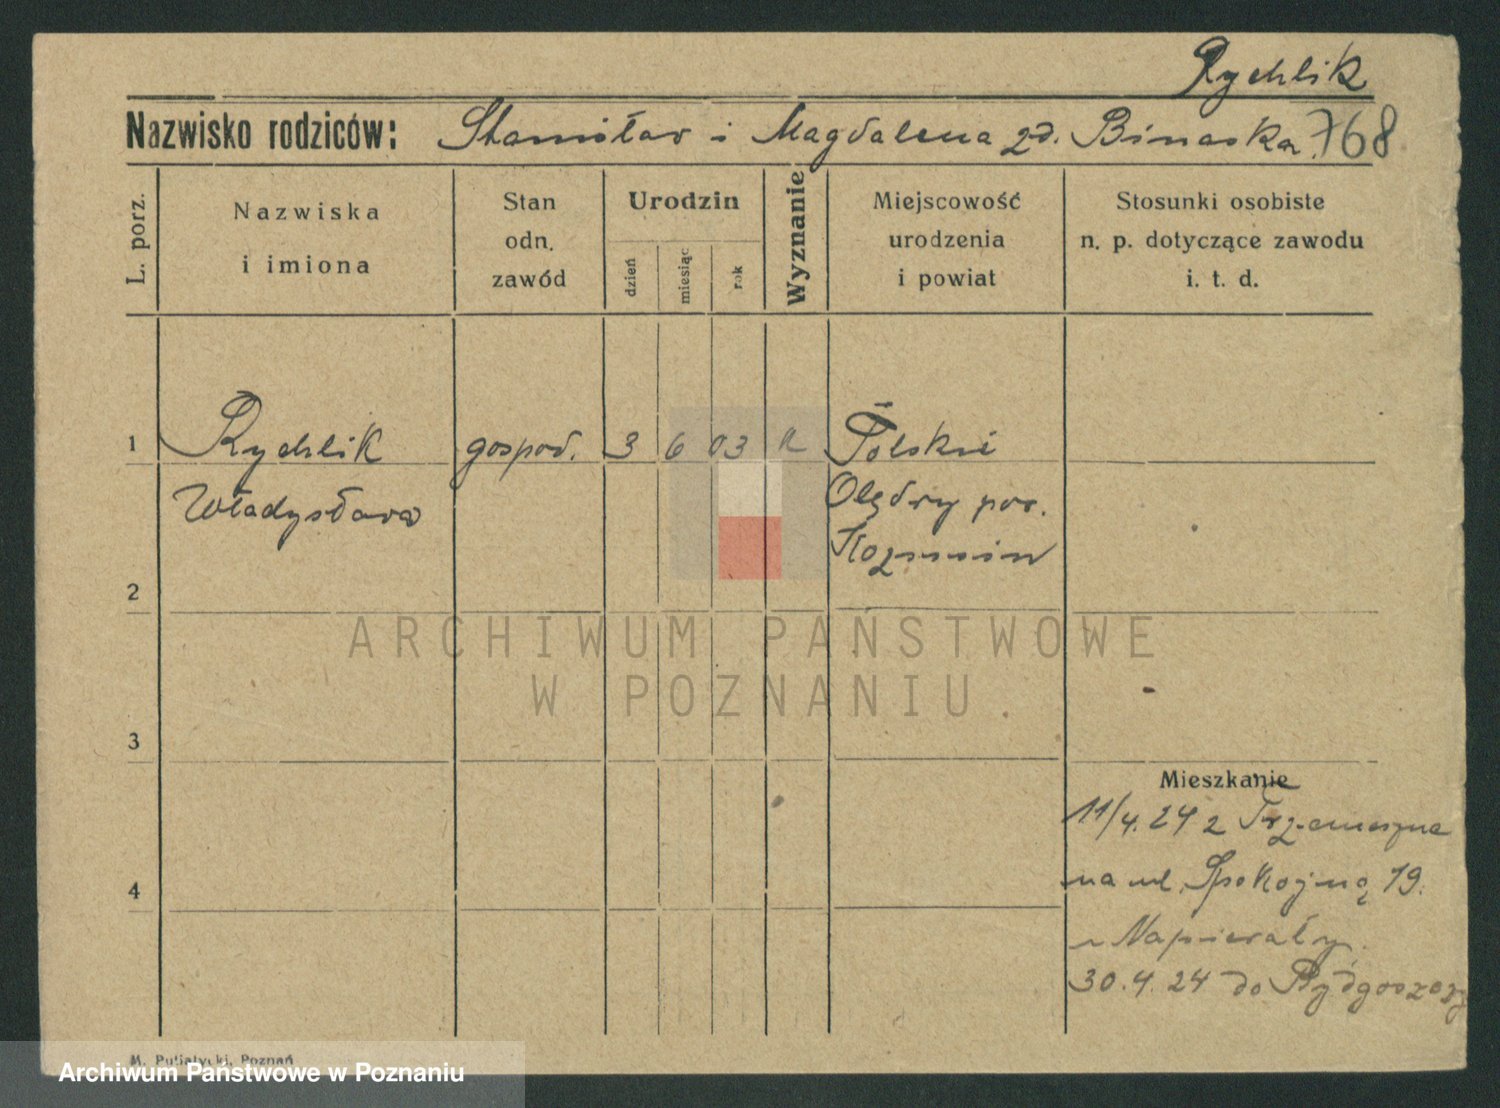 Rychlik
Nazwisko rodziców: Stanisław i Magdalena zd. Binaska 768
L. porz.
Nazwiska
i imiona
Stan
odn.
zawód
Urodzin
dzień
miesiąc
rok
Wyznanie
Miejscowość
urodzenia
i powiat
Stosunki osobiste
n. p. dotyczące zawodu
i. t. d.
1 Rychlik gospod. 3 6 03 K Polskie
Władysława Olędry pow.
Kozmin
2
ARCHIWUM PAŃSTWOWE
W POZNANIU
3
Mieszkanie
11/4. 24 z Trzemeszna
na ul. Spokojną 19.
4
u Napierały.
30.4.24 do Bydgoszczy
M. Putiatycki, Poznań
Archiwum Państwowe w Poznaniu